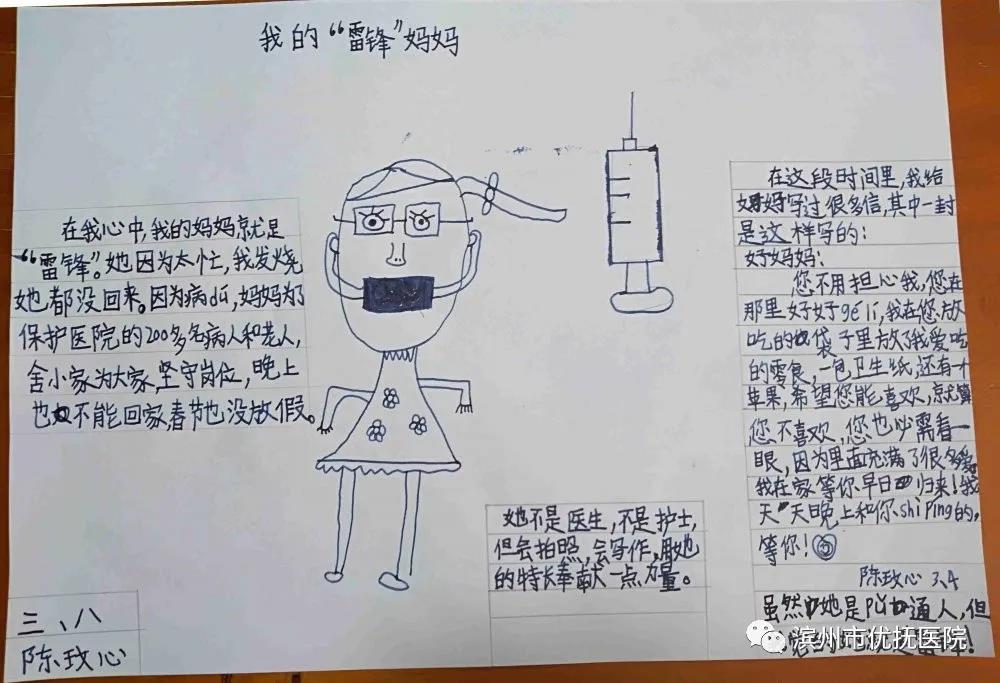 我的“雷锋”妈妈
在我心中,我的妈妈就是
“雷锋”。她因为太忙,我发烧
她都没回来。因为病dú,妈妈为了
保护医院的200多名病人和老人,
舍小家为大家,坚守岗位,晚上
也不能回家,春节也没放假。
她不是医生,不是护士,
但会拍照,会写作,用她
的特长奉献一点力量。
在这段时间里,我给
妈妈写过很多信,其中一封
是这样写的:
好妈妈:
您不用担心我,您在
那里好好gé lí,我在您放
吃的袋子里放了我爱吃
的零食,一包卫生纸,还有
苹果,希望您能喜欢,就算
您不喜欢,您也必需看一
眼,因为里面充满了很多爱。
我在家等你早日归来!我
天天晚上和你shi Ping的,
等你!
陈玟心 3、4
虽然她是pǔ通人,但
三、八
陈玟心
滨州市优抚医院